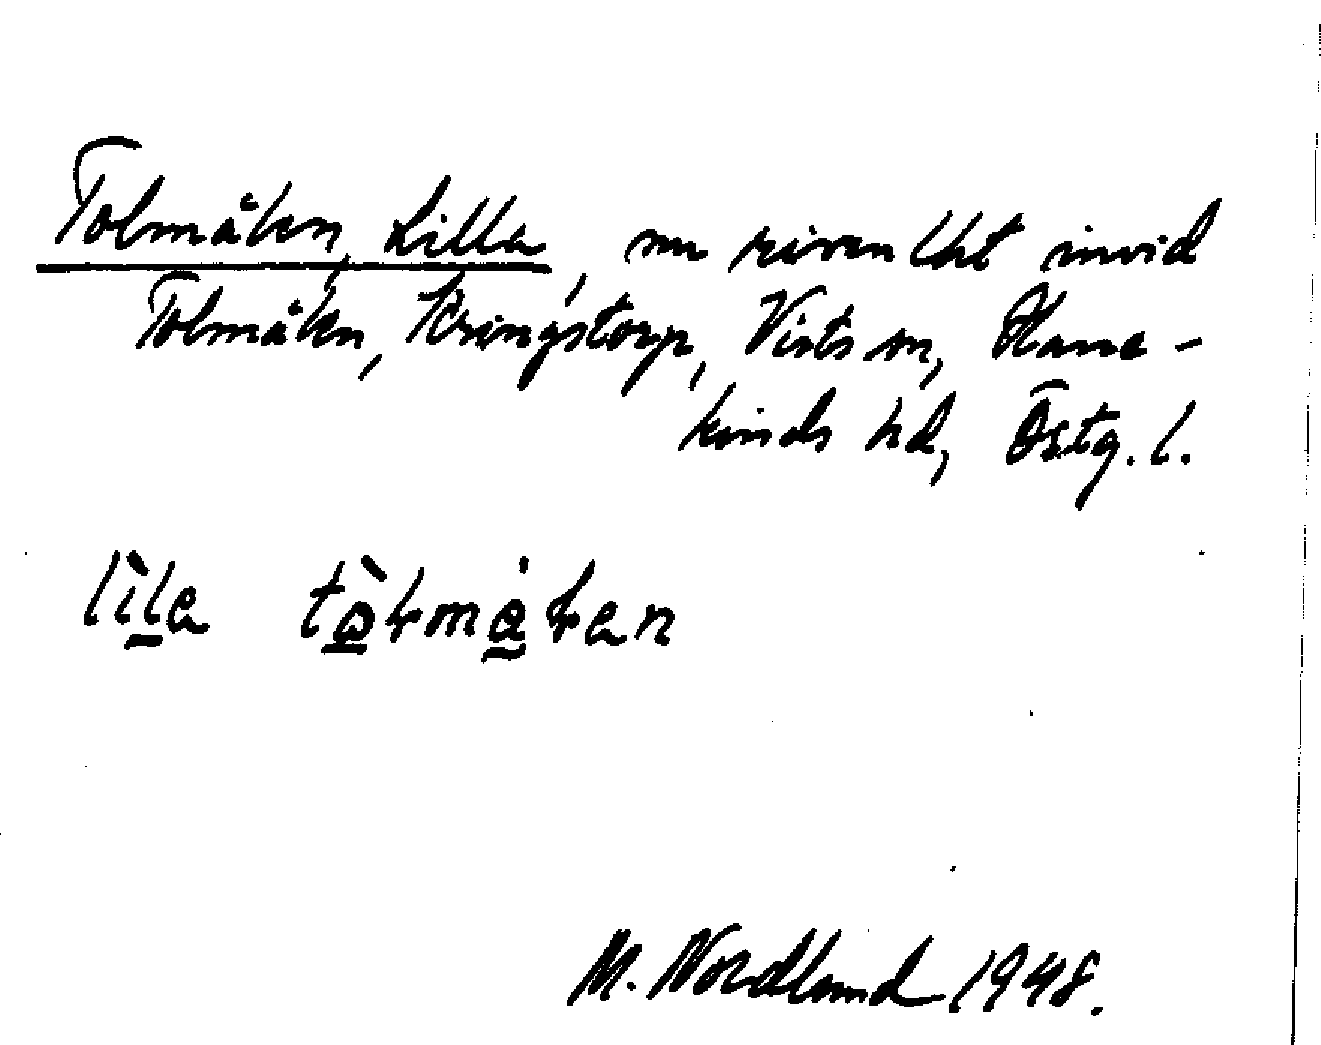 Tolmåln, Lilla, nu riven lht invid
Tolmåln, Kringstorp, Vists sn, Hane-
kinds hd, Östg. l.
lìla tòłmȧłan
M. Nordlund 1948.